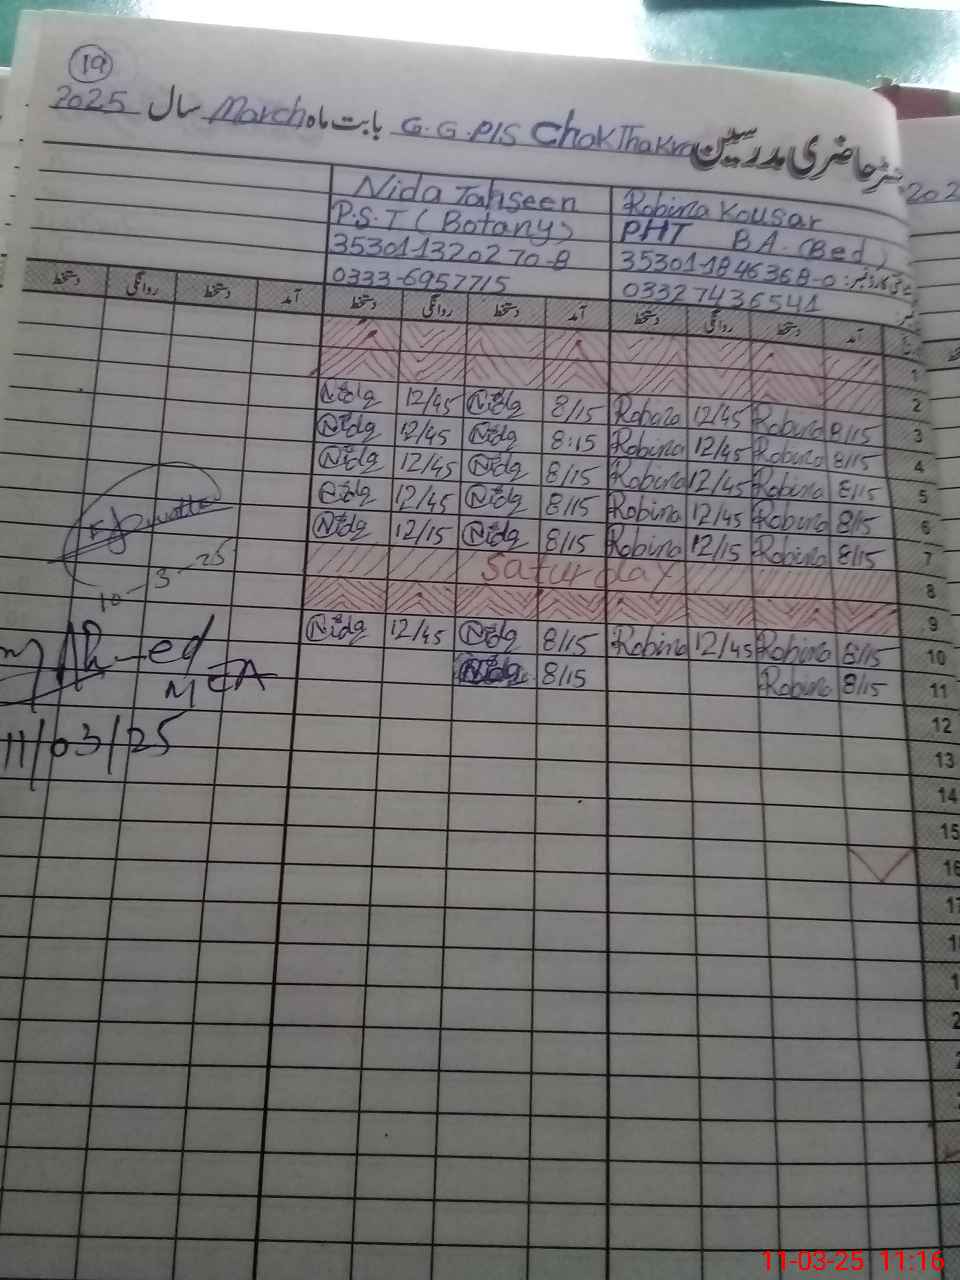 19
رجسٹر حاضری مدرسین G.G.P/S Chak Thakra بابت ماہ March سال 2025
Robina Kousar Nida Tahseen
PHT B.A.(Bed) P.S.T (Botany)
35301-1846368-0 35301-1320270-8
03327436541 0333-6957715
آمد دستخط روانگی دستخط آمد دستخط روانگی دستخط آمد دستخط روانگی دستخط
1
2
3 8/15 Robina 12/45 Robina 8/15 Nida 12/45 Nida
4 8/15 Robina 12/45 Robina 8:15 Nida 12/45 Nida
5 8/15 Robina 12/45 Robina 8/15 Nida 12/45 Nida
6 8/15 Robina 12/45 Robina 8/15 Nida 12/45 Nida
7 8/15 Robina 12/15 Robina 8/15 Nida 12/15 Nida
8 Saturday
9
10 8/15 Robina 12/45 Robina 8/15 Nida 12/45 Nida
11 8/15 Robina 8/15 Nida
12
13
14
15
16
10-3-25
MEA
11/03/25
11-03-25 11:16